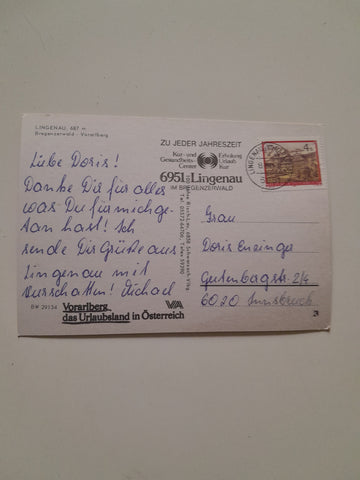 LINGENAU, 687 m
Bregenzerwald - Vorarlberg
Liebe Doris!
Danke Dir für alles
was Du für mich ge-
tan hast! Ich
sende Dir Grüße aus
Lingenau mit
Michael
BW 29134
Vorarlberg
das Urlaubsland in Österreich
VVA
ZU JEDER JAHRESZEIT
Kur- und
Gesundheits-
Center
Erholung
Urlaub
Kur
6951 Lingenau
IM BREGENZERWALD
LINGENAU
Frau
Doris
Gutenbergstr. 2/4
6020 Innsbruck